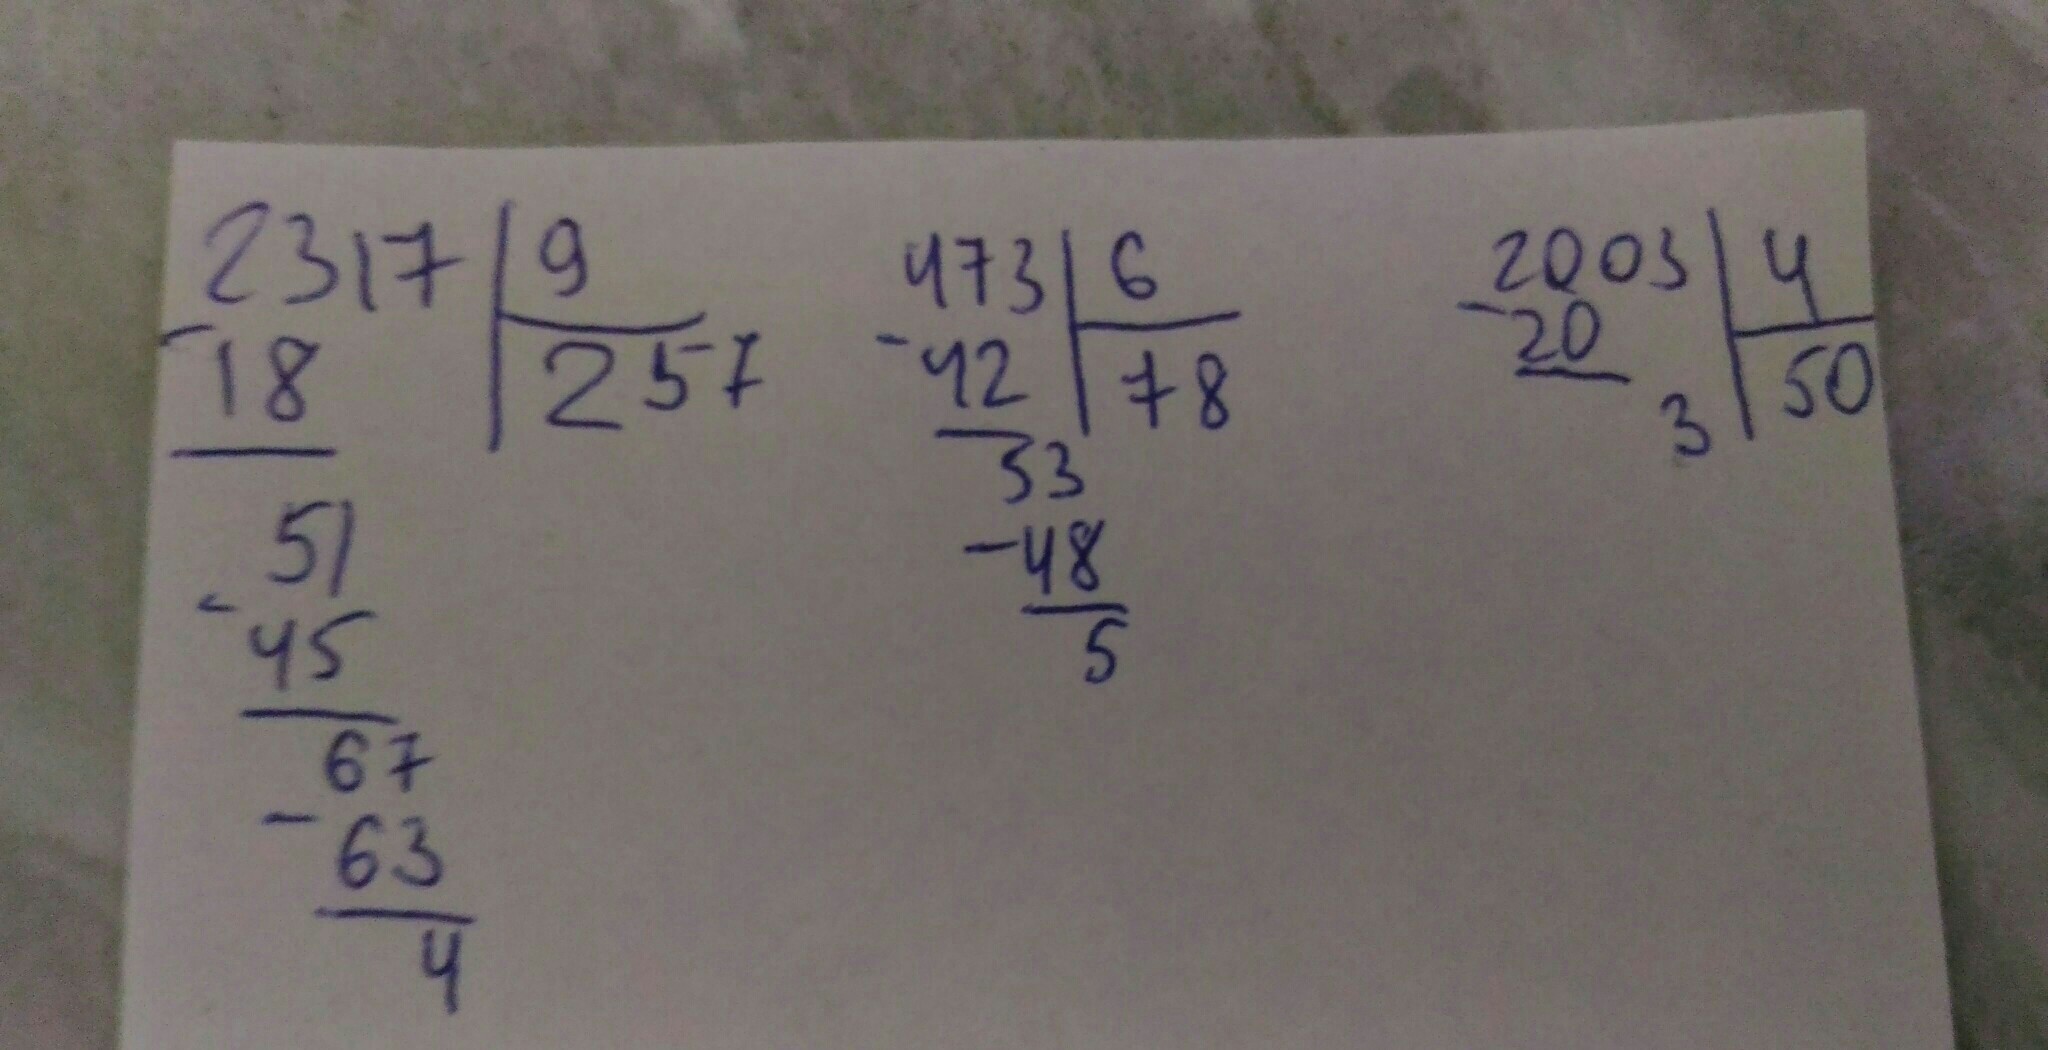 2317 9
-18 257
51
-45
67
-63
4
473 6
-42 78
53
-48
5
2003 4
-20 50
3